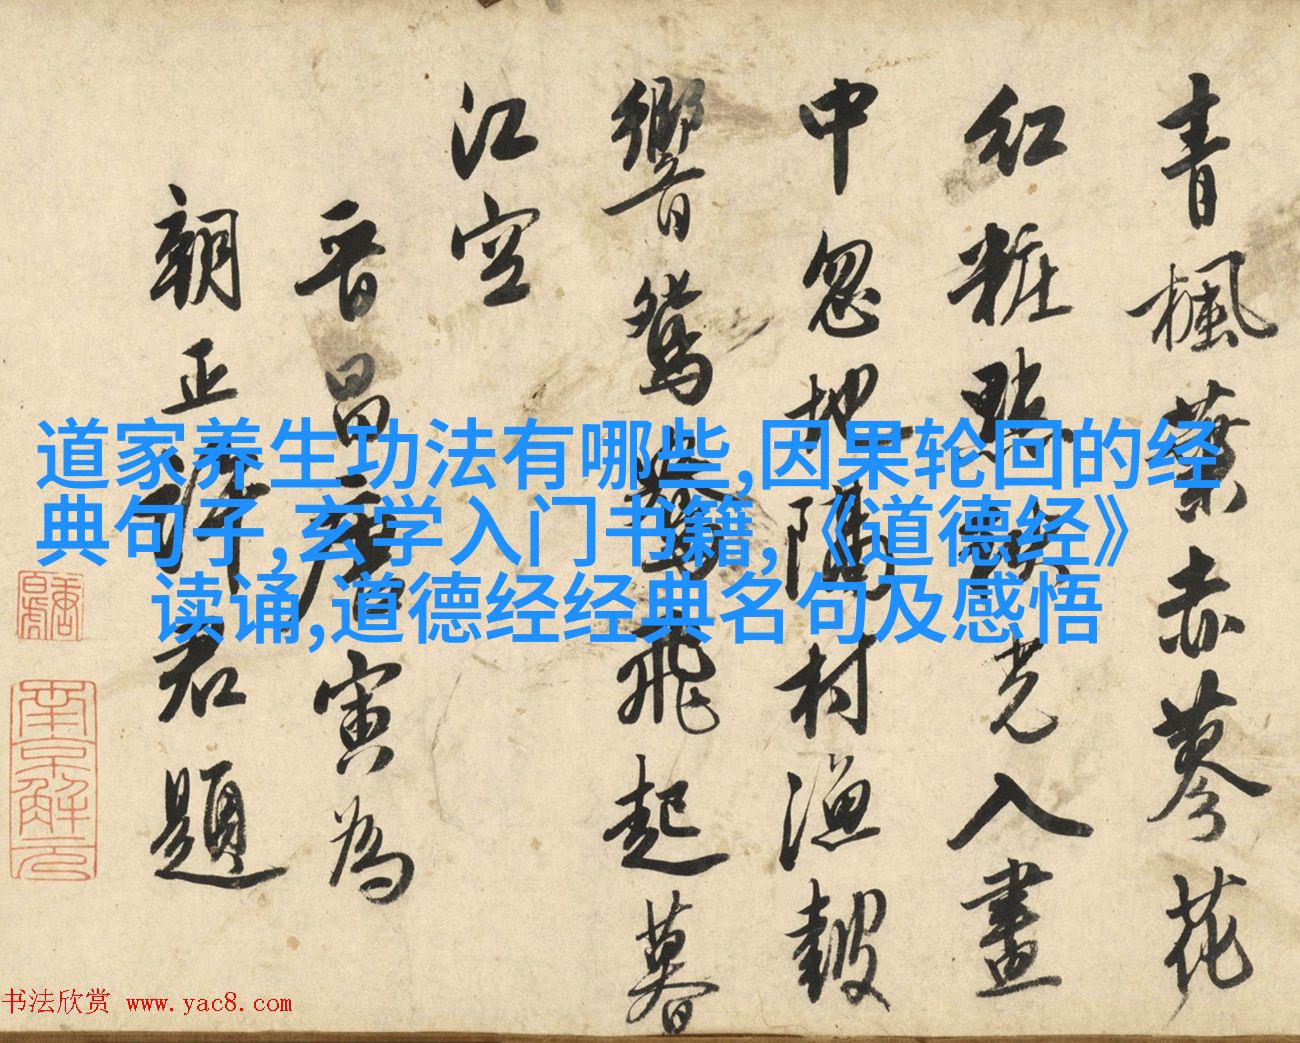 青楓葉赤蓼花
紅粧點秋光入畫
中忽地隔村漁鼓
響鴛鴦飛起暮
江空
晉昌唐寅為
朝正君題
唐白虎
南京解元
道家养生功法有哪些,因果轮回的经
典句子,玄学入门书籍,《道德经》
读诵,道德经经典名句及感悟
书法欣赏 www.yac8.com